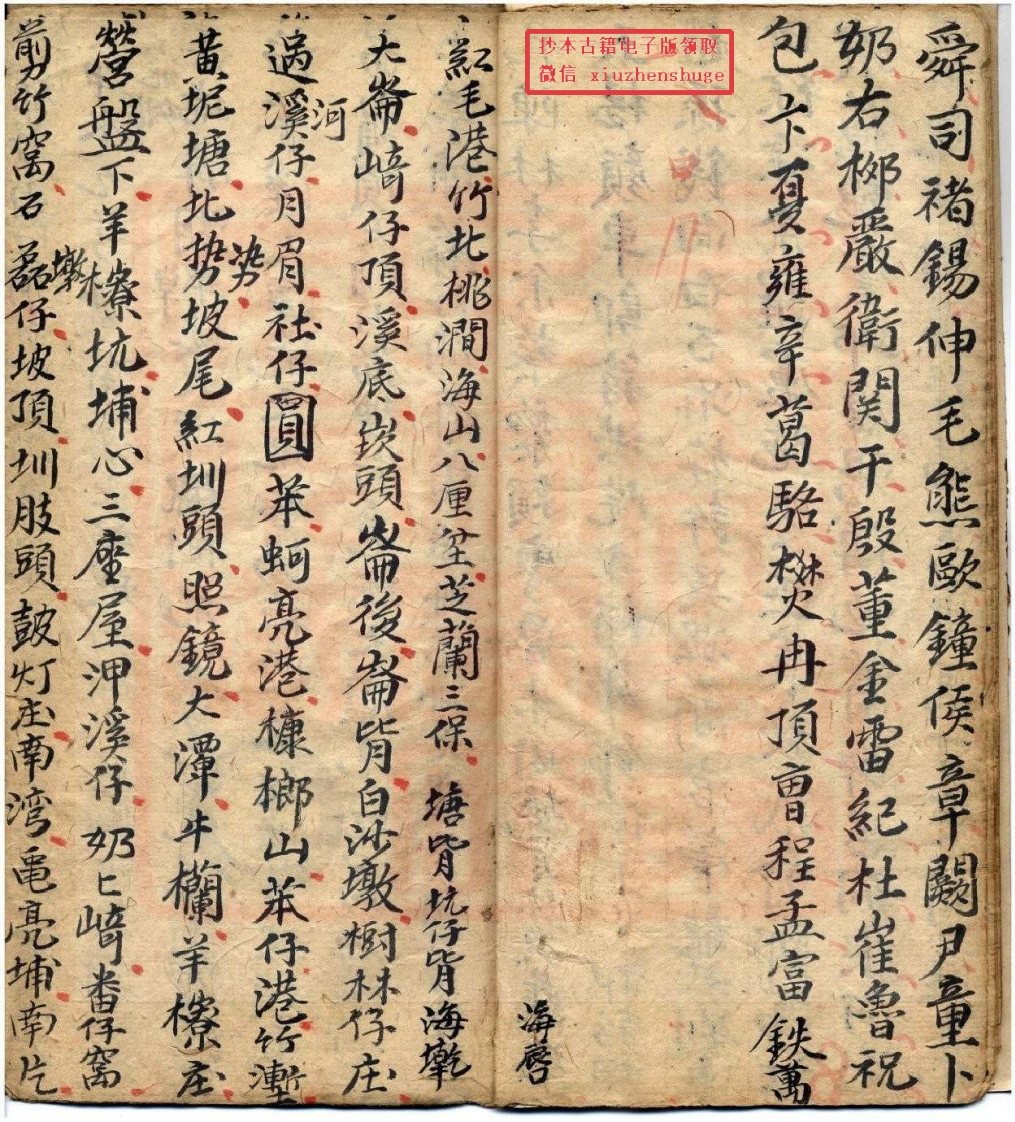 抄本古籍电子版领取
微信 xiuzhenshuge
舜司褚錫伸毛熊歐鐘侯章闕尹童卜
妎右柳嚴衛関干殷董金雷紀杜崔魯祝
包卞夏雍辛葛駱樊冉項曹程孟富鉄萬
海唇
紅毛港竹北桃澗海山八厘坌芝蘭三保塘背坑仔背海墘
大崙崎仔頂溪底崁頭崙後崙背白沙墩樹林仔庄
過溪仔月眉社仔圓苯蚵亮港槺榔山苯仔港竹塹
河
黄坭塘北勢坡尾紅圳頭照鏡大潭牛欄羊橑庄
勢
營盤下羊橑坑埔心三座屋泙溪仔妎匕崎番仔窩
墩
剪竹窩石磊仔坡頂圳肢頭皷灯庄南湾黽亮埔南片